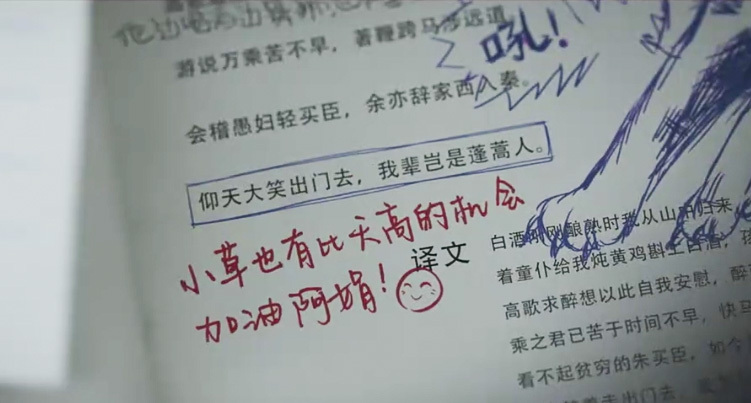 游说万乘苦不早，著鞭跨马涉远道
吼！
会稽愚妇轻买臣，余亦辞家西入秦。
仰天大笑出门去，我辈岂是蓬蒿人。
小草也有比天高的机会
加油阿娟！
译文
白酒刚刚酿熟时我从山中归来，
着童仆给我炖黄鸡斟上白酒，孩
高歌求醉想以此自我安慰，醉
乘之君已苦于时间不早，快马
看不起贫穷的朱买臣，如今
着走出门去，